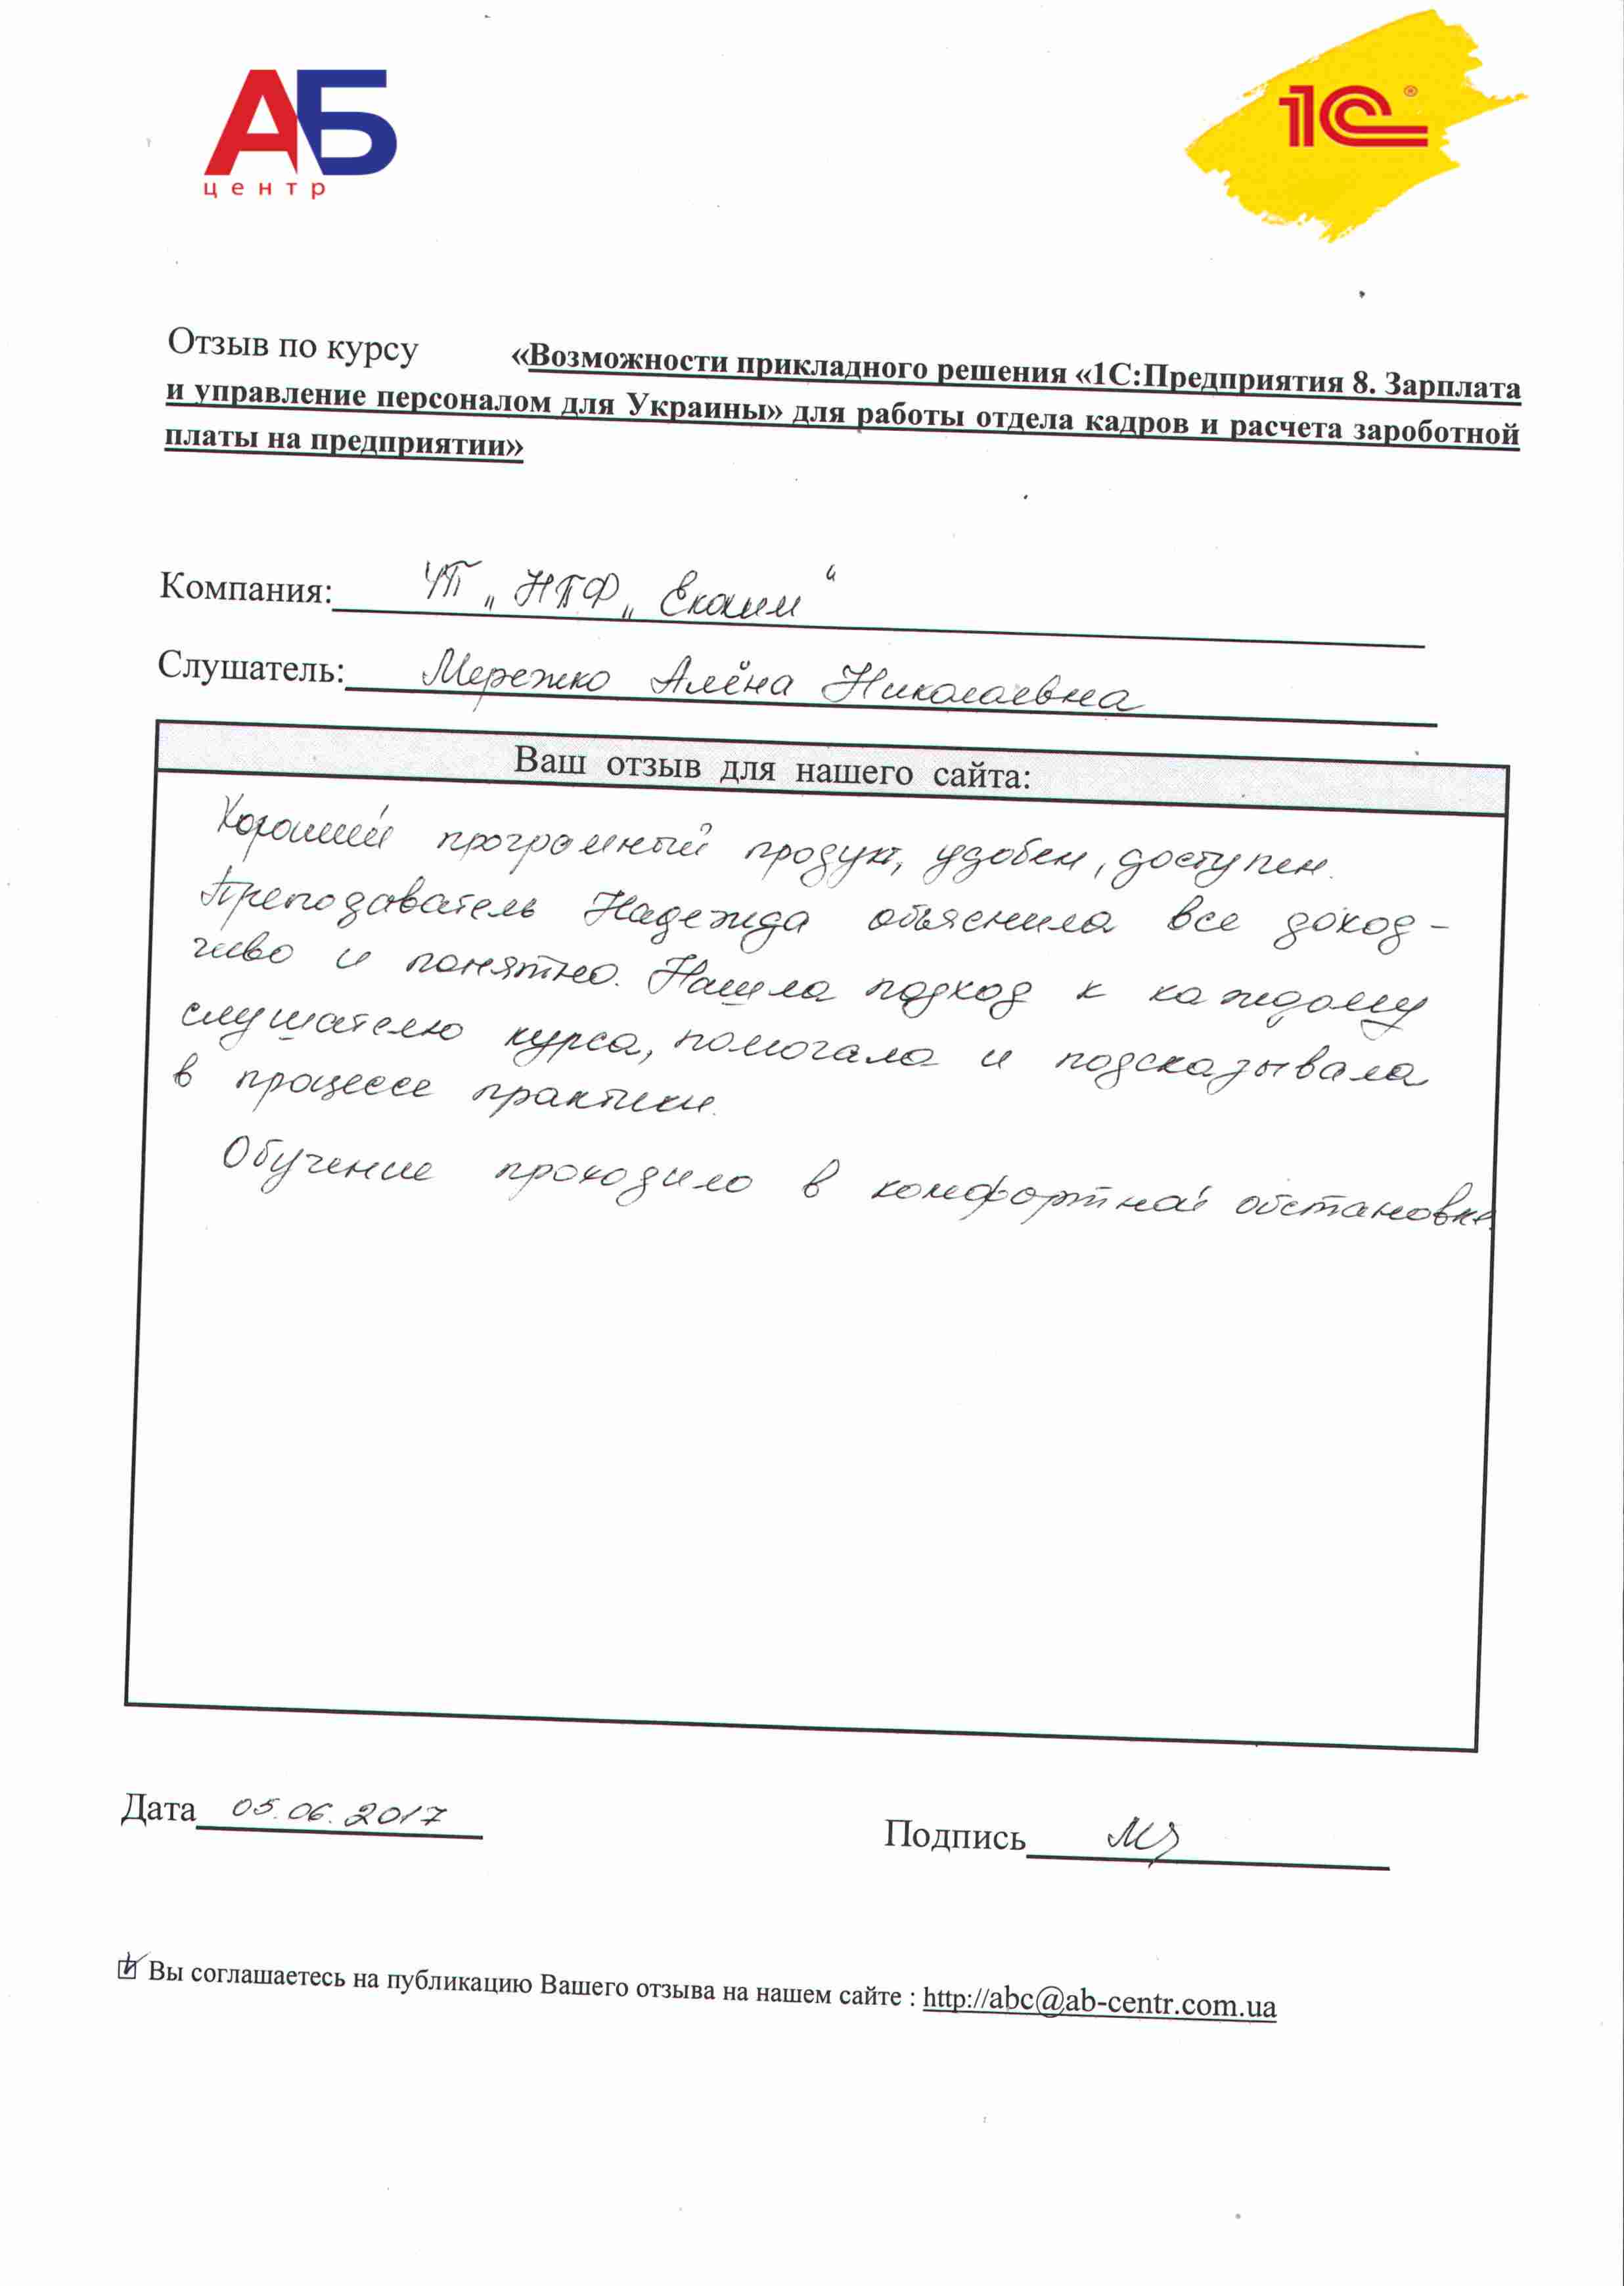 АБ
центр
1С®
Отзыв по курсу «Возможности прикладного решения «1С:Предприятия 8. Зарплата
и управление персоналом для Украины» для работы отдела кадров и расчета зароботной
платы на предприятии»
Компания: ЧП „НПФ „
Слушатель: Мережко Алёна Николаевна
Ваш отзыв для нашего сайта:
Хороший програмный продукт, удобен, доступен.
Преподаватель Надежда объяснила все доход-
чиво и понятно. Нашла подход к каждому
слушателю курса, помогала и подсказывала
в процессе практики.
Обучение проходило в комфортной обстановке.
Дата 05.06.2017
Подпись
Вы соглашаетесь на публикацию Вашего отзыва на нашем сайте : http://abc@ab-centr.com.ua